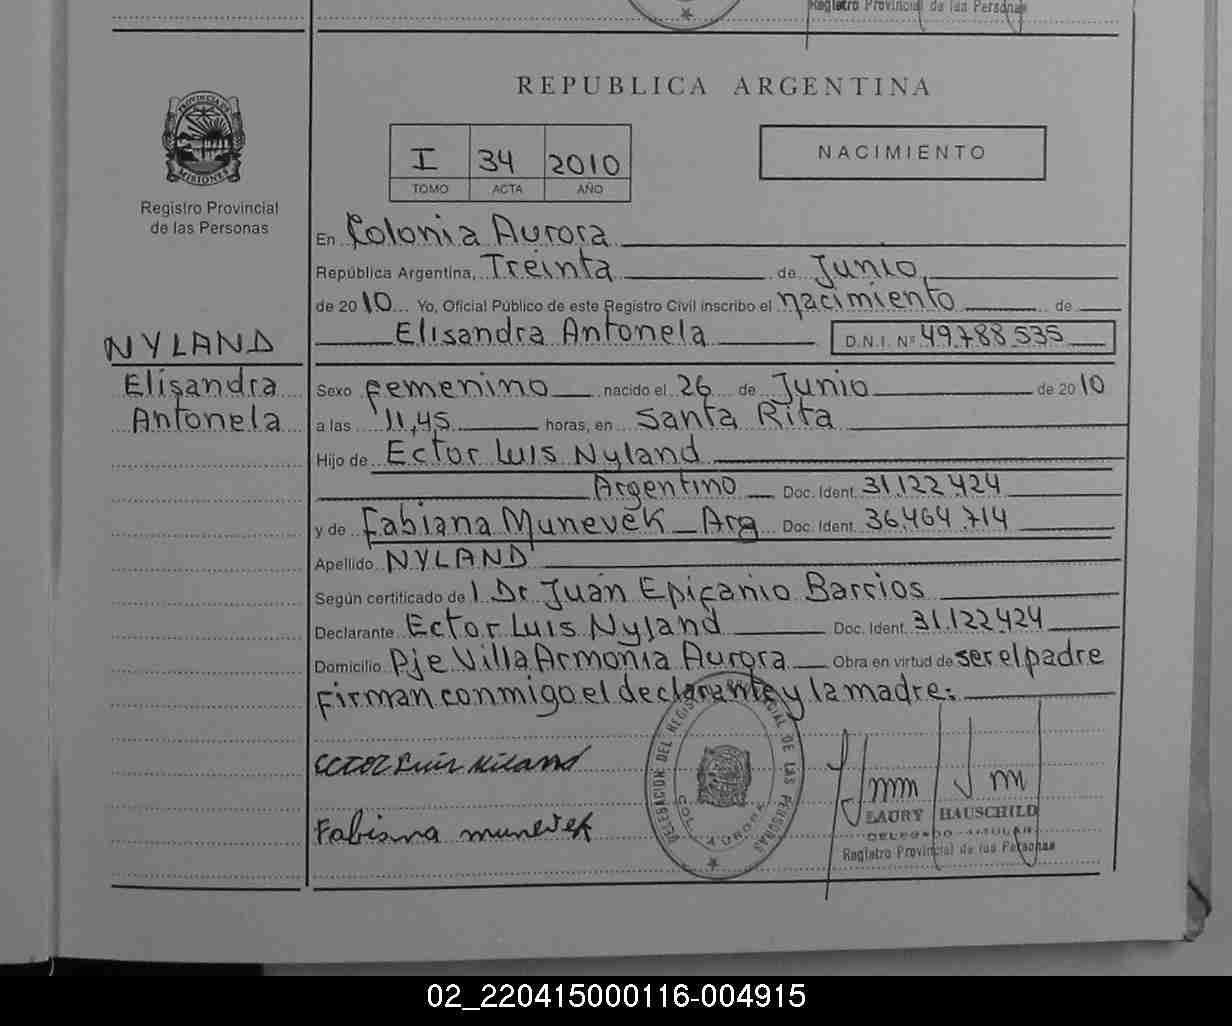 Registro Provincial de las Personas
REPUBLICA ARGENTINA
PROVINCIA DE
MISIONES
Registro Provincial
de las Personas
I 34 2010
TOMO ACTA AÑO
NACIMIENTO
En Colonia Aurora
República Argentina, Treinta de Junio
de 2010 Yo, Oficial Público de este Registro Civil inscribo el nacimiento de
Elisandra Antonela D.N.I. Nº 49.788.535
NYLAND
Elisandra
Antonela
Sexo femenino nacido el 26 de Junio de 2010
a las 11,45 horas, en Santa Rita
Hijo de Ector Luis Nyland
Argentino Doc. Ident. 31.122.424
y de Fabiana Munevek _ Arg Doc. Ident. 36.464.714
Apellido NYLAND
Según certificado de l Dr Juan Epifanio Barrios
Declarante Ector Luis Nyland Doc. Ident. 31.122.424
Domicilio Pje Villa Armonia Aurora Obra en virtud de ser el padre
firman conmigo el declarante y la madre:
DELEGACION DEL REGISTRO PROVINCIAL DE LAS PERSONAS
COL. AURORA
Ector Luis Niland
Fabiana munevek
LAURY HAUSCHILD
DELEGADO TITULAR
Registro Provincial de las Personas
02_220415000116-004915